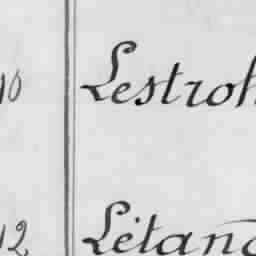 10 Lestroh
12 Létand